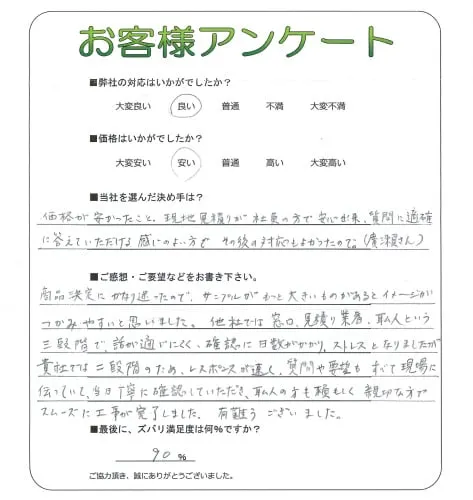 お客様アンケート
■弊社の対応はいかがでしたか？
大変良い 良い 普通 不満 大変不満
■価格はいかがでしたか？
大変安い 安い 普通 高い 大変高い
■当社を選んだ決め手は？
価格が安かったこと、現地見積りが社員の方で安心出来、質問に適確
に答えていただける感じのよい方で その後の対応もよかったので。(廣瀬さん)
■ご感想・ご要望などをお書き下さい。
商品決定にかなり迷ったので、サンプルがもっと大きいものがあるとイメージが
つかみやすいと思いました。他社では窓口、見積り業者、職人という
三段階で、話が通じにくく、確認に日数がかかり、ストレスとなりましたが
貴社では二段階のため、レスポンスが速く、質問や要望もすべて現場に
伝っていて、当日丁寧に確認していただき、職人の方も頼もしく 親切な方で
スムーズに工事が完了しました。 有難う ございました。
■最後に、ズバリ満足度は何％ですか？
90 %
ご協力頂き、誠にありがとうございました。